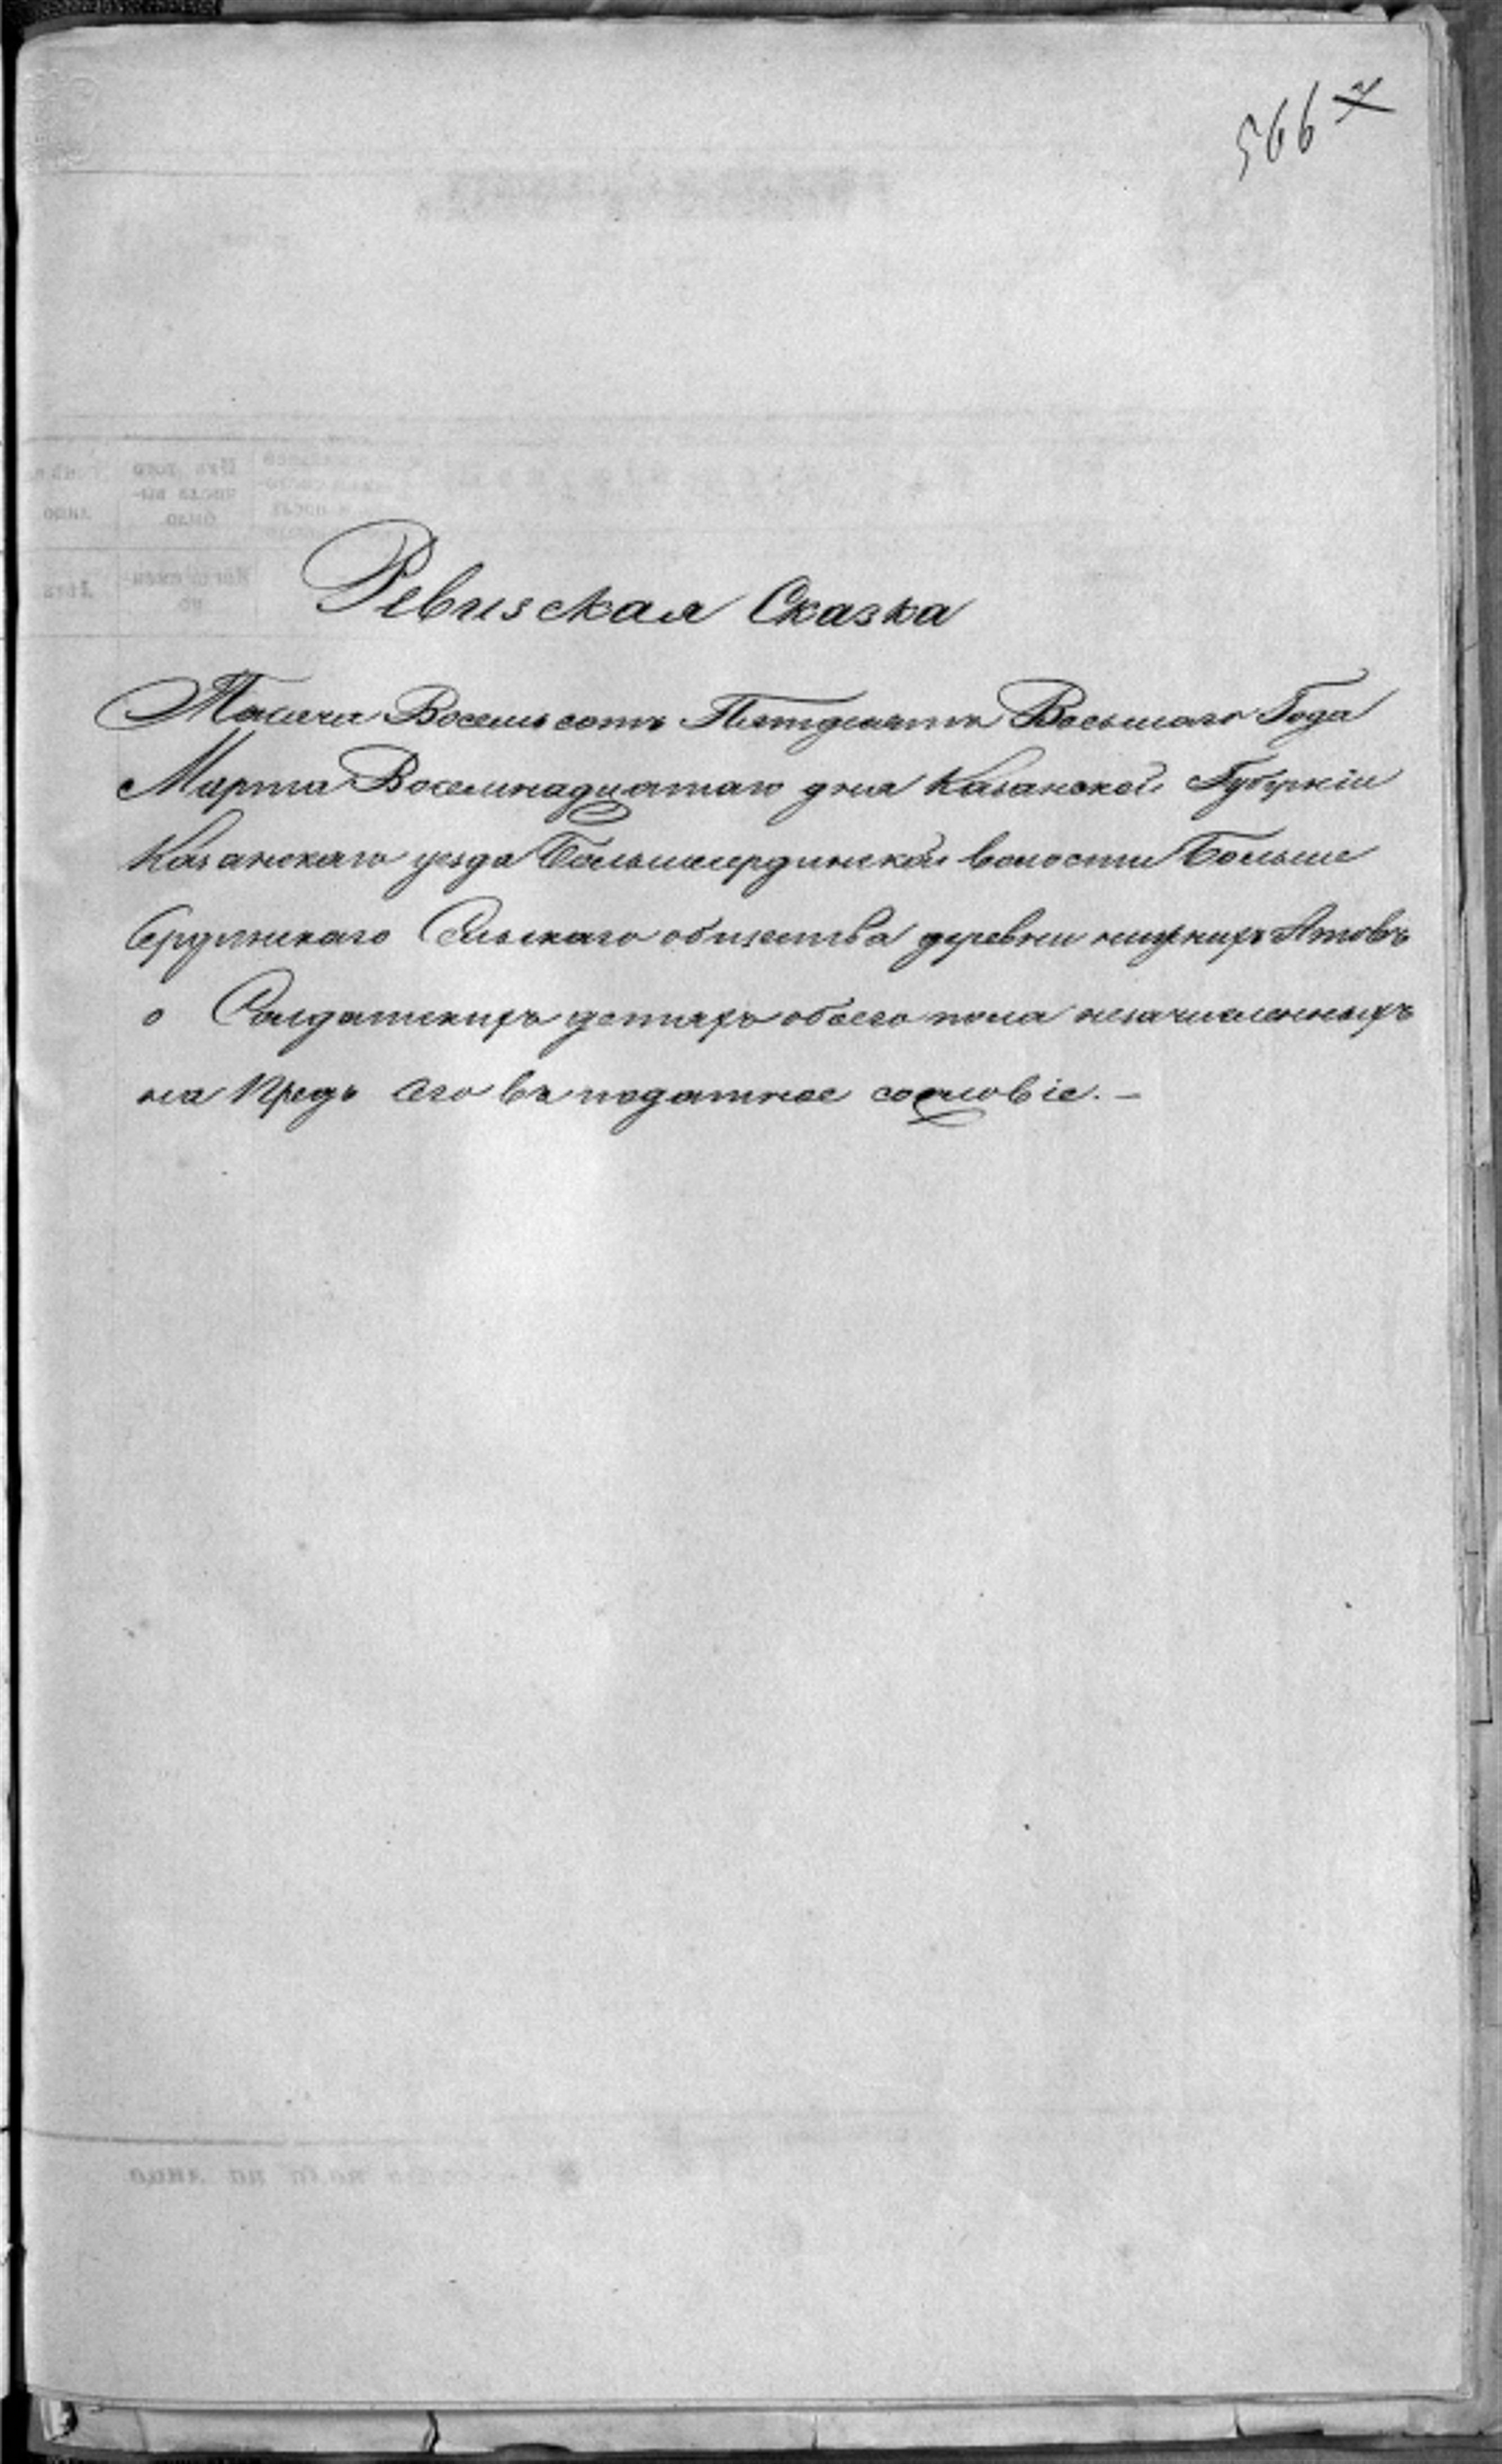 566
Ревизская Сказка
Тысяча Восемь сотъ Пятдесятъ Восьмаго Года
Марта Восемнадцатаго дня Казанской Губерніи
Казанскаго уезда Большесердинской волости Больше
Сердинскаго Сельскаго общества деревни нижнихъ Атовъ
о Солдатскихъ детяхъ обоего пола незачисленныхъ
на Предь сего въ податное сословіе. –